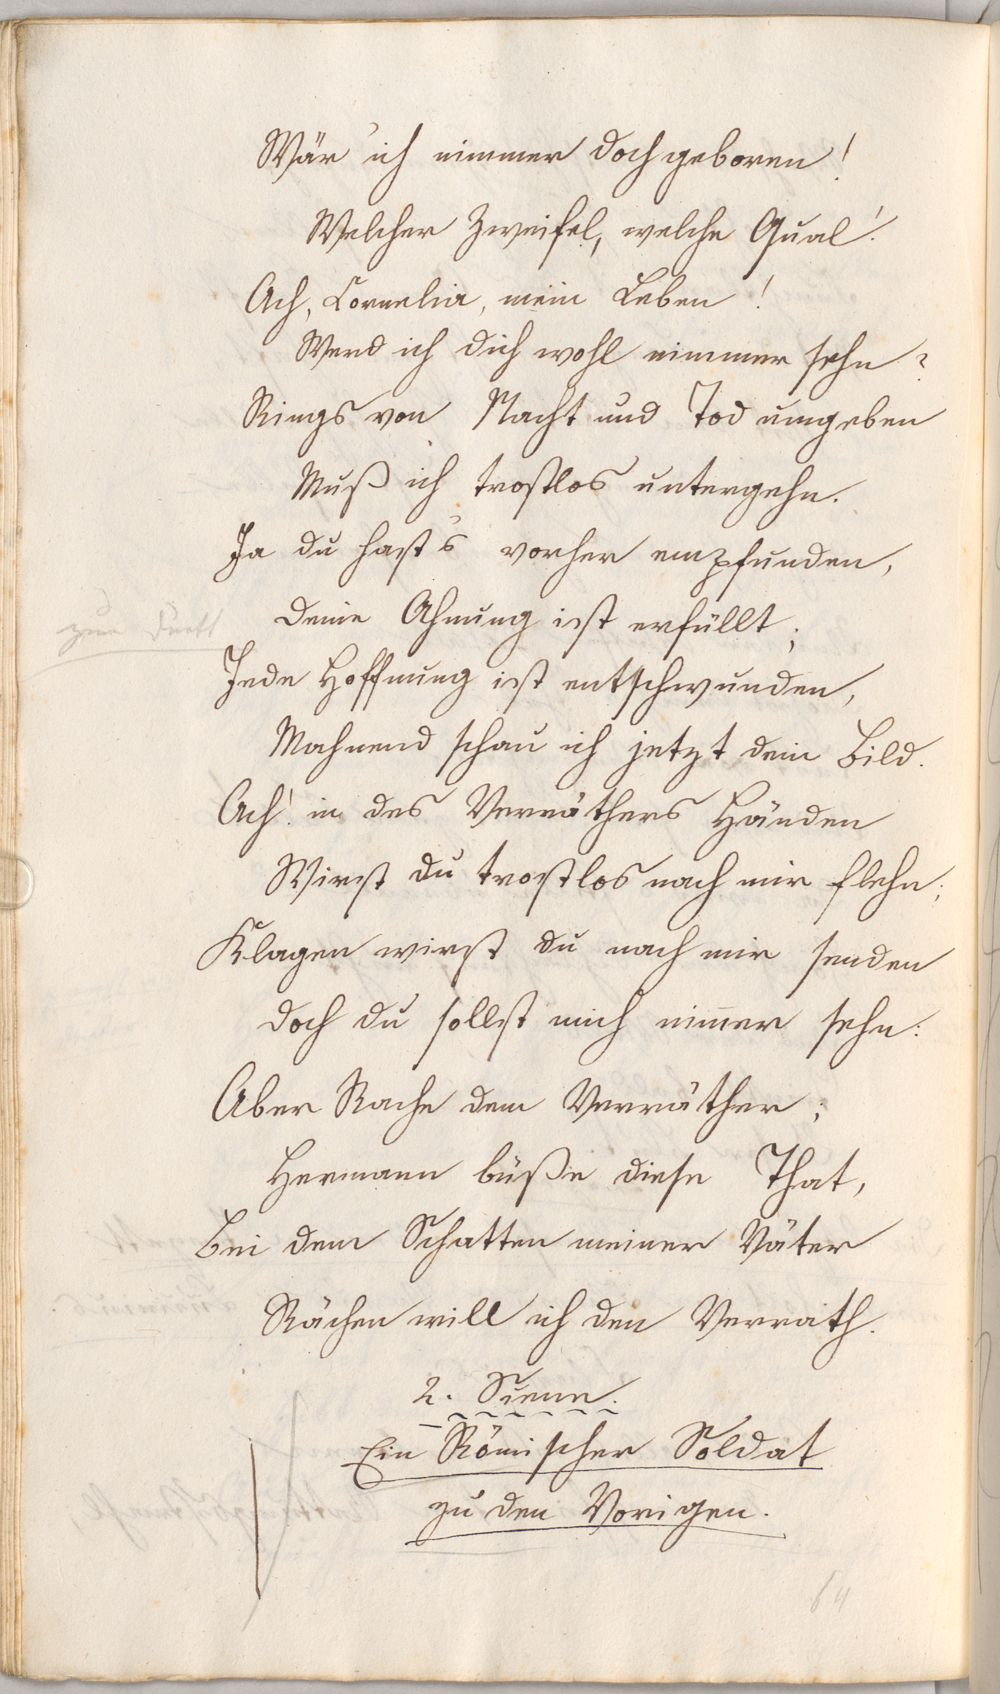 Wär ich nimmer doch geboren!
Welcher Zweifel, welche Qual!
Ach, Cornelia, mein Leben!
Werd ich dich wohl nimmer sehn?
Rings von Nacht und Tod umgeben
Muß ich trostlos untergehn.
Ja du hast's vorher empfunden,
Deine Ahnung ist erfüllt;
zum Duett
Jede Hoffnung ist entschwunden,
Mahnend schau ich jetzt dein Bild.
Ach! in des Verräthers Händen
Wirst du trostlos nach mir flehn;
Klagen wirst du nach mir senden
Doch du sollst mich nim̅er sehn:
Aber Rache dem Verräther;
Hermann büße diese That,
Bei dem Schatten meiner Väter
Rächen will ich den Verrath.
2. Scene.
Ein Römischer Soldat
zu den Vorigen.
64